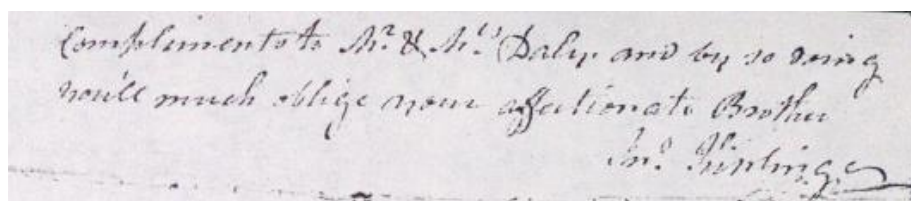 Compliments to Mr. & Mrs. Daly and by so doing
you'll much oblige your affectionate Brother
Jno. Kipling